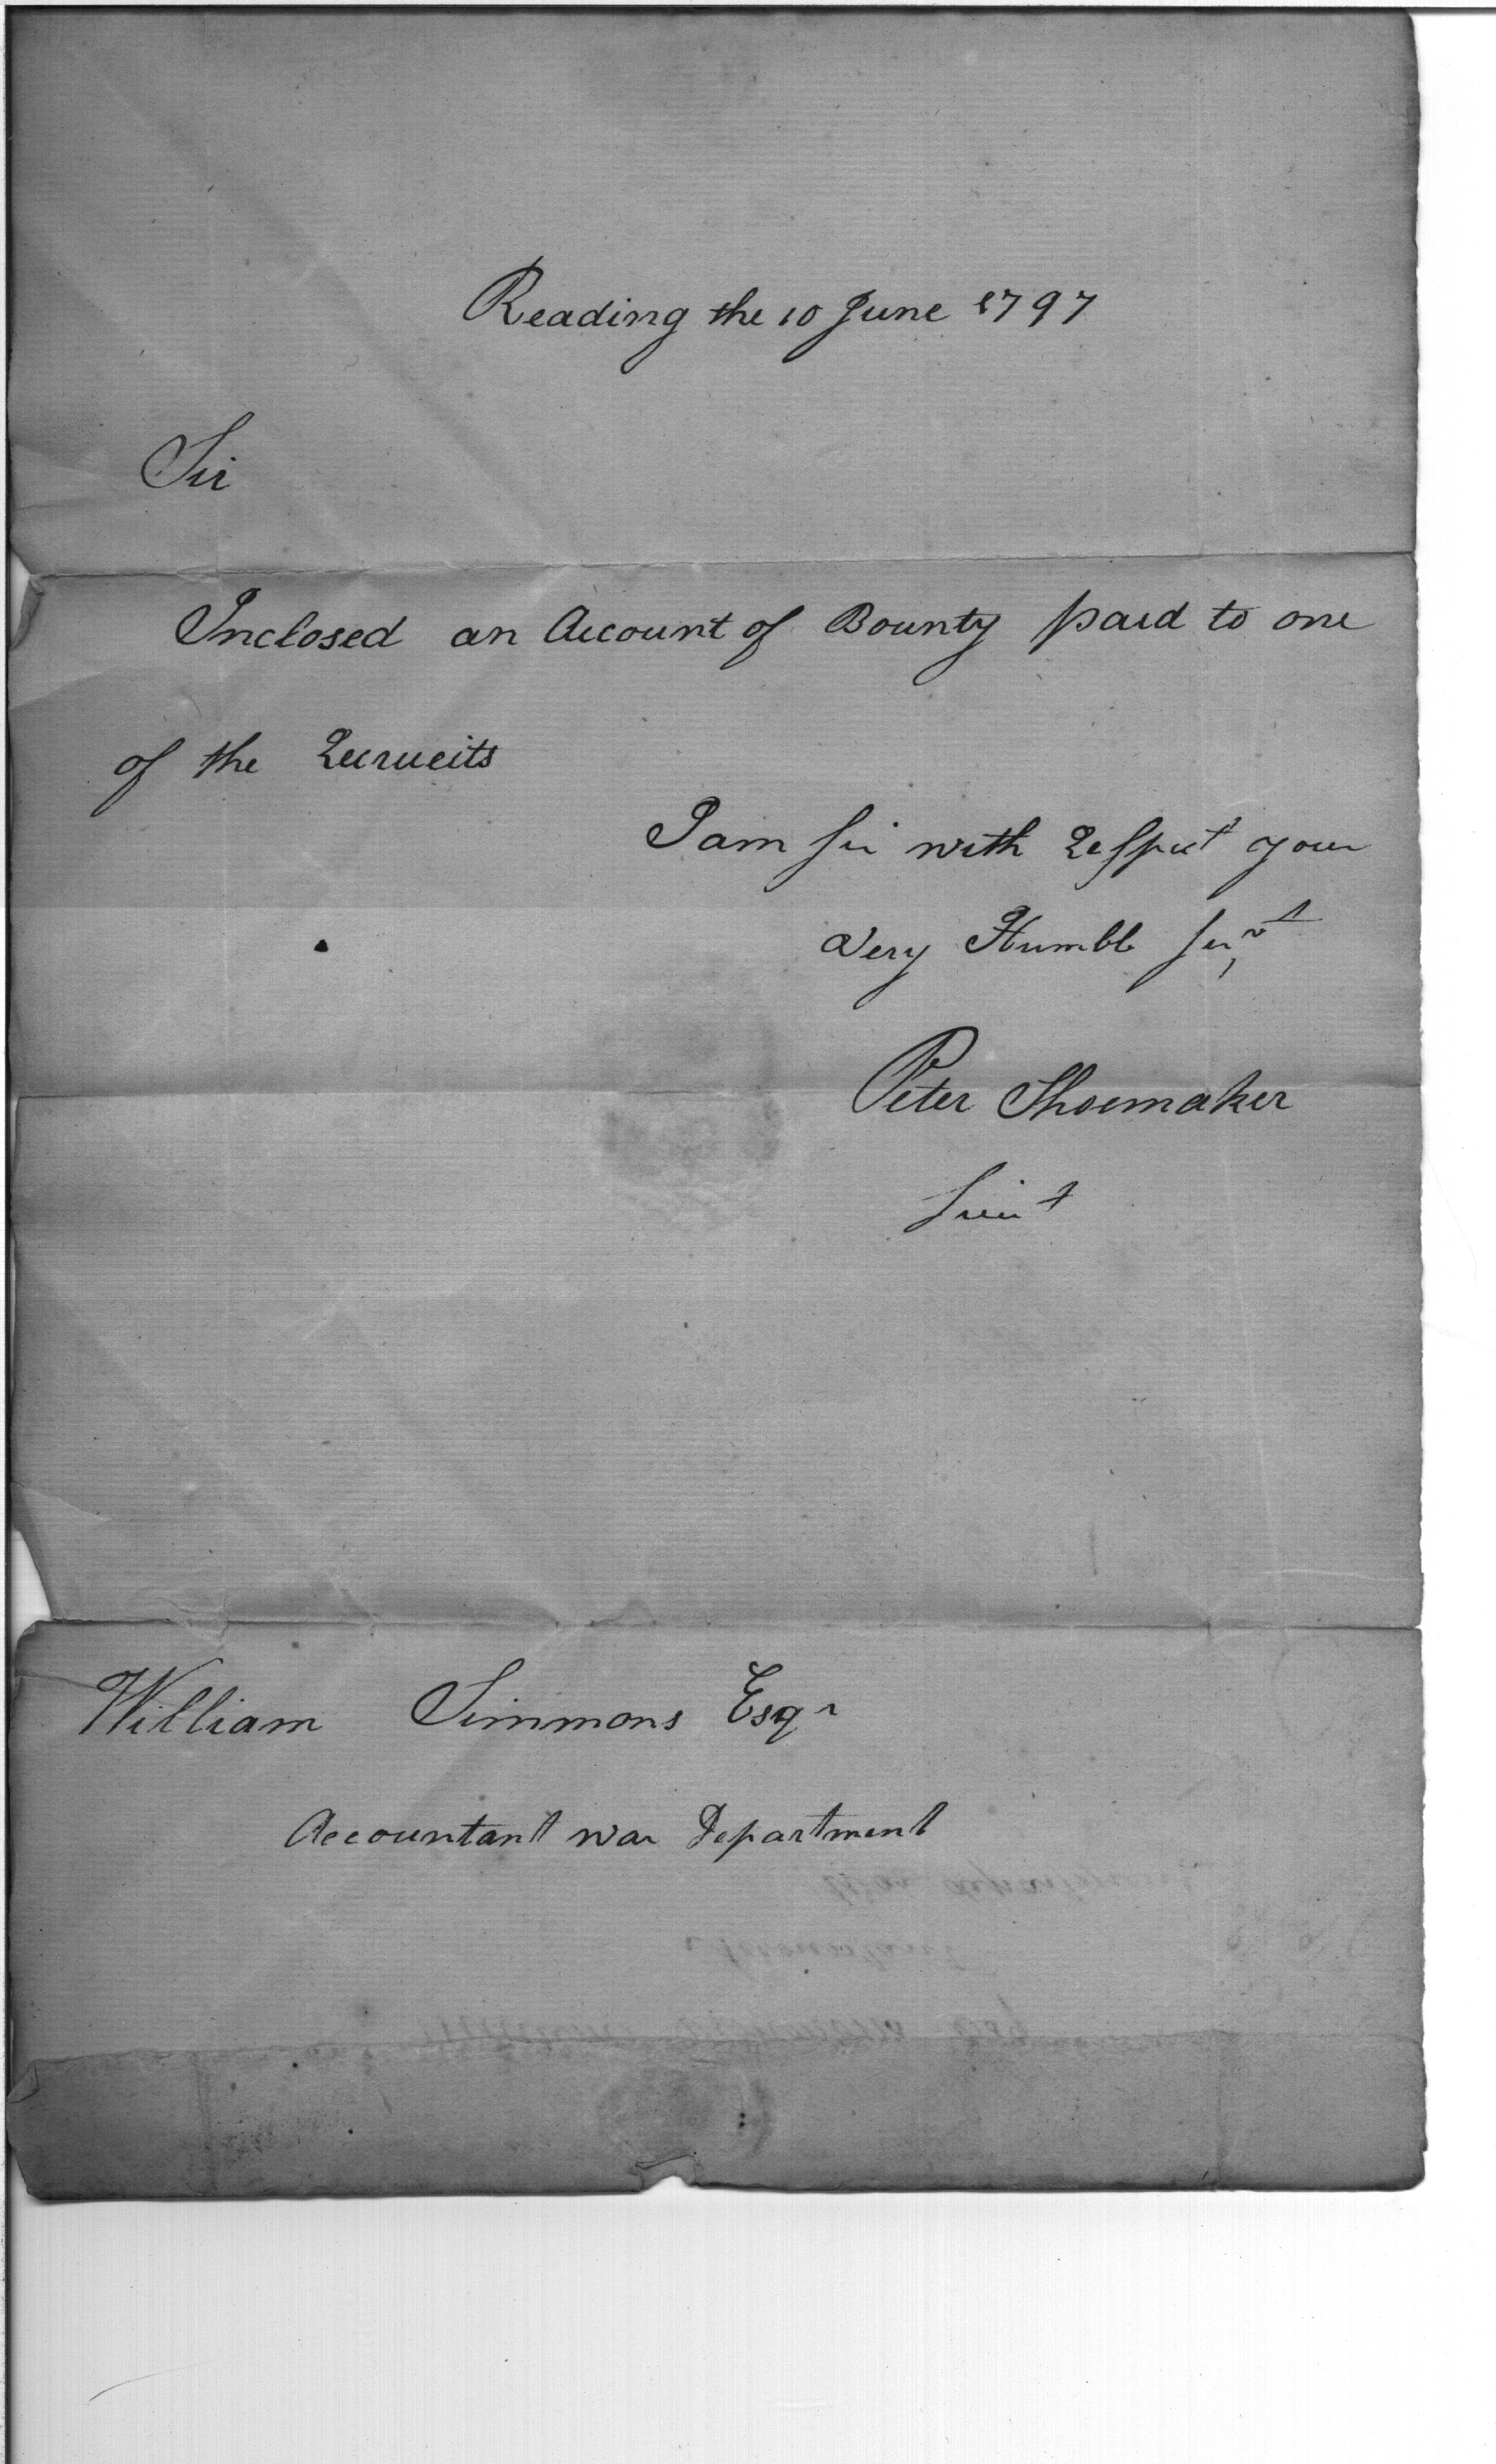 Reading the 10 June 1797
Sir
Inclosed an Account of Bounty paid to one
of the Recrueits
I am Sir with Respect your
Very Humble Servt
Peter Shoemaker
Lieut
William Simmons Esqr
Accountant war Department